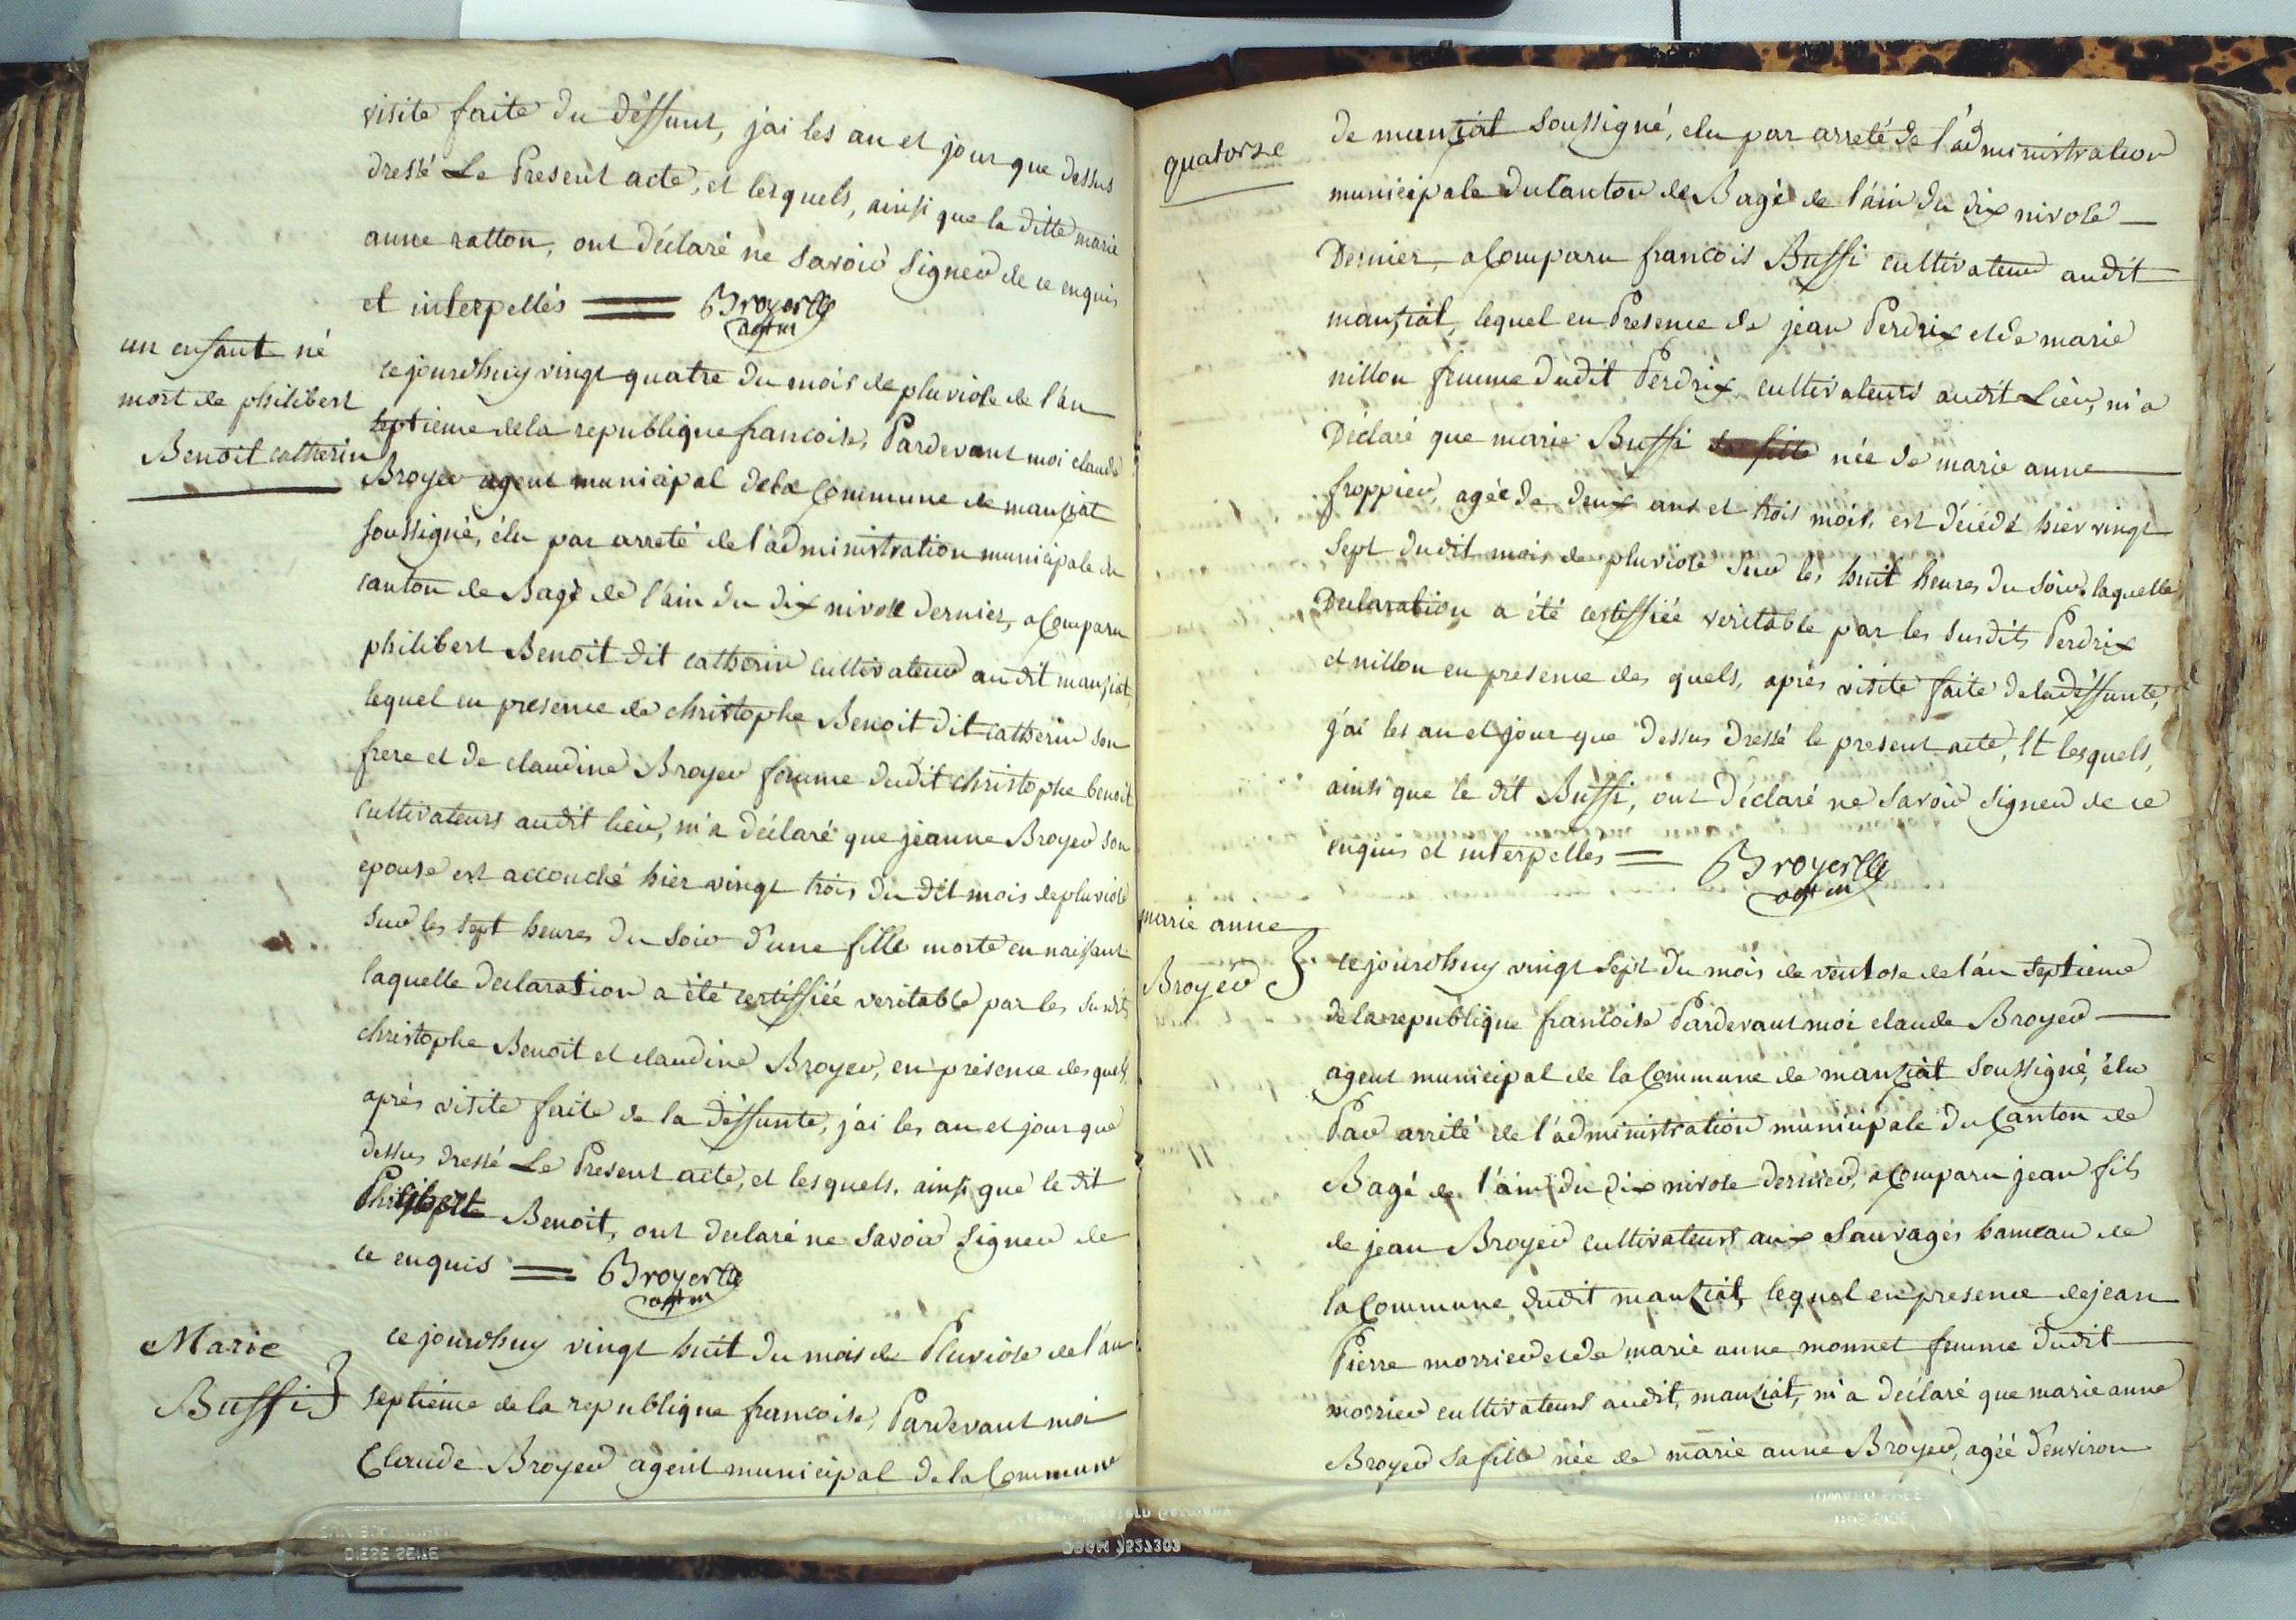 visite faite du déffunt, j'ai les an et jour que dessus
dressé Le Present acte, et lesquels, ainsi que la ditte marie
anne ratton, ont déclaré ne savoir signer de ce enquis
et interpellés Broyer
agt m
un enfant né
mort de philibert
Benoit catherin
cejourdhuy vingt quatre du mois de pluviose de l'an
septieme dela republique francoise, Pardevant moi claude
Broyer agent municipal dela Commune de manziat
soussigné, élu par arreté de l'administration municipale du
canton de Bagé de l'ain du dix nivose dernier, a Comparu
philibert Benoit dit catherin cultivateur audit manziat,
lequel en presence de christophe Benoit dit catherin son
frere et de claudine Broyer femme dudit christophe benoit
cultivateurs audit lieu, m'a déclaré que jeanne Broyer son
epouse est accouché hier vingt trois du dit mois de pluviose
sur les sept heures du soir d'une fille morte en naissant
laquelle declaration a été certiffiée veritable par les susdits
christophe Benoit et claudine Broyer, en présence des quels,
après visite faite de la déffunte, j'ai les an et jour que
dessus dressé Le Present acte, et lesquels, ainsi que le dit
Benoit, ont declaré ne savoir signer de
ce enquis Broyer
agt m
Marie
Buffi
cejourdhuy vingt huit du mois de Pluviose de l'an
septieme de la republique francoise, Pardevant moi
Claude Broyer agent municipal de la Commune
quatorze
de manziat soussigné, elu par arreté de l'administration
municipale du Canton de Bagé de l'ain du dix nivose
Dernier, a Comparu francois Buffi cultivateur audit
manziat, lequel en Presence de jean Perdrix et de marie
nillon femme dudit Perdrix, cultivateurs audit Lieu, m'a
Déclaré que marie Buffi sa fille née de marie anne
froppier, agée de deux ans et trois mois, est décédé hier vingt
sept dudit mois de pluviose sur les huit heures du soir. laquelle
Declaration a été certiffiée veritable par les susdits Perdrix
et nillon en presence des quels, après visite faite de la déffunte,
j'ai les an et jour que dessus dressé le present acte, Et lesquels,
ainsi que le dit Buffi, ont déclaré ne savoir signer de ce
enquis et interpellés Broyer
agt m
marie anne
Broyer
cejourdhuy vingt sept du mois de ventose de l'an septieme
dela republique francoise Pardevant moi claude Broyer
agent municipal de la Commune de manziat soussigné, élu
Par arreté de l'administration municipale du Canton de
Bagé de l'ain du dix nivose dernier, a Comparu jean fils
de jean Broyer cultivateurs aux Sauvages hameau de
la Commune dudit manziat, lequel en presence de jean
Pierre morrier et de marie anne monnet femme dudit
morrier cultivateurs audit manziat, m'a déclaré que marie anne
Broyer sa fille née de marie anne Broyer, agéé d'environ